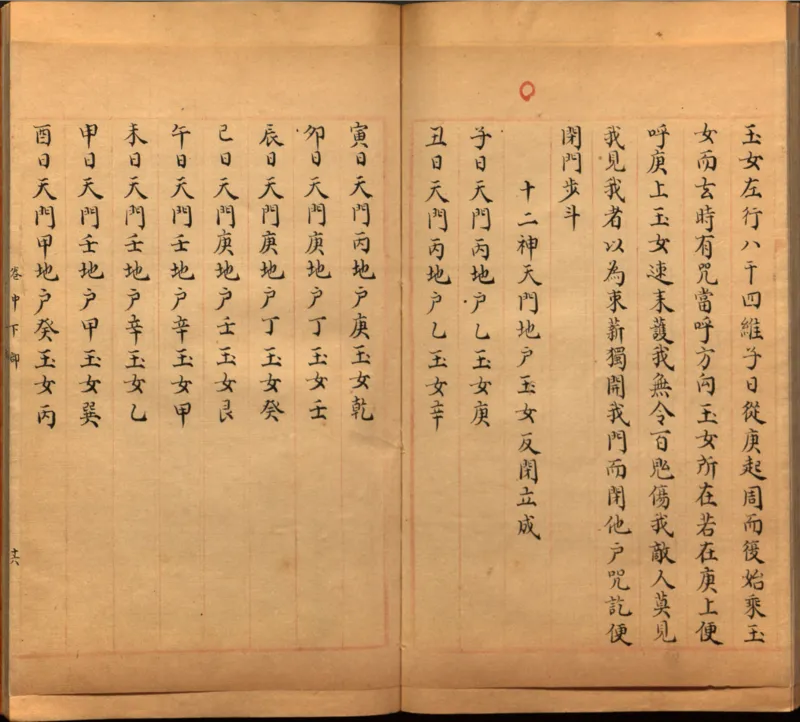 玉女左行八干四維子日從庚起周而復始乘玉
女而去時有咒當呼方向玉女所在若在庚上便
呼庚上玉女速来護我無令百鬼傷我敵人莫見
我見我者以為束薪獨開我門而閉他戶咒訖便
閉門步斗
十二神天門地戶玉女反閉立成
子日天門丙地戶乙玉女庚
丑日天門丙地戶乙玉女辛
寅日天門丙地戶庚玉女乾
卯日天門庚地戶丁玉女壬
辰日天門庚地戶丁玉女癸
巳日天門庚地戶壬玉女艮
午日天門壬地戶辛玉女甲
未日天門壬地戶辛玉女乙
申日天門壬地戶甲玉女巽
酉日天門甲地戶癸玉女丙
十六